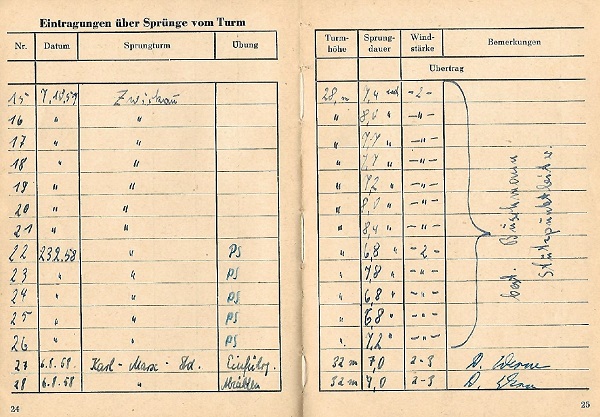 Eintragungen über Sprünge vom Turm
Nr. Datum Sprungturm Übung Turm-höhe Sprung-dauer Wind-stärke Bemerkungen
Übertrag
15 Zwickau 28, m 7,4 -2-
16 " " " 8,0 " -"-
17 " " " 7,7 " -"-
18 " " " 7,7 " -"-
19 " " " 7,2 " -"-
20 " " " 8,0 " -"-
21 " " " 8,4 " -"-
22 23.2.58 " PS " 6,8 " -2-
23 " " PS " 7,8 " -"-
24 " " PS " 6,8 " -"-
25 " " PS " 6,8 " -"-
26 " " PS " 7,2 " -"-
best. Buschmann
Stützpunktleiter
27 6.8.58 Karl-Marx-Std. Einführg. 32 m 7,0 2-3
28 6.8.58 " 32 m 7,0 2-3
24
25